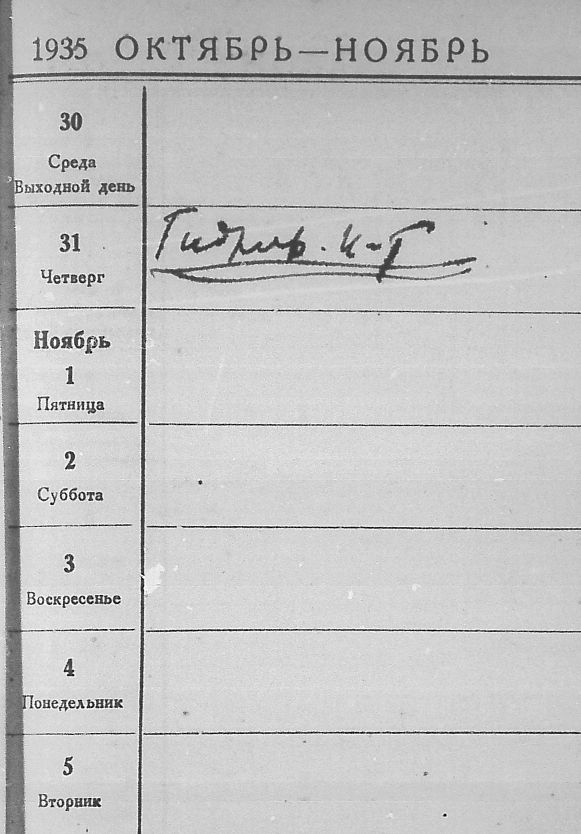 1935 ОКТЯБРЬ—НОЯБРЬ
30
Среда
Выходной день
31
Четверг
И-т
Ноябрь
1
Пятница
2
Суббота
3
Воскресенье
4
Понедельник
5
Вторник